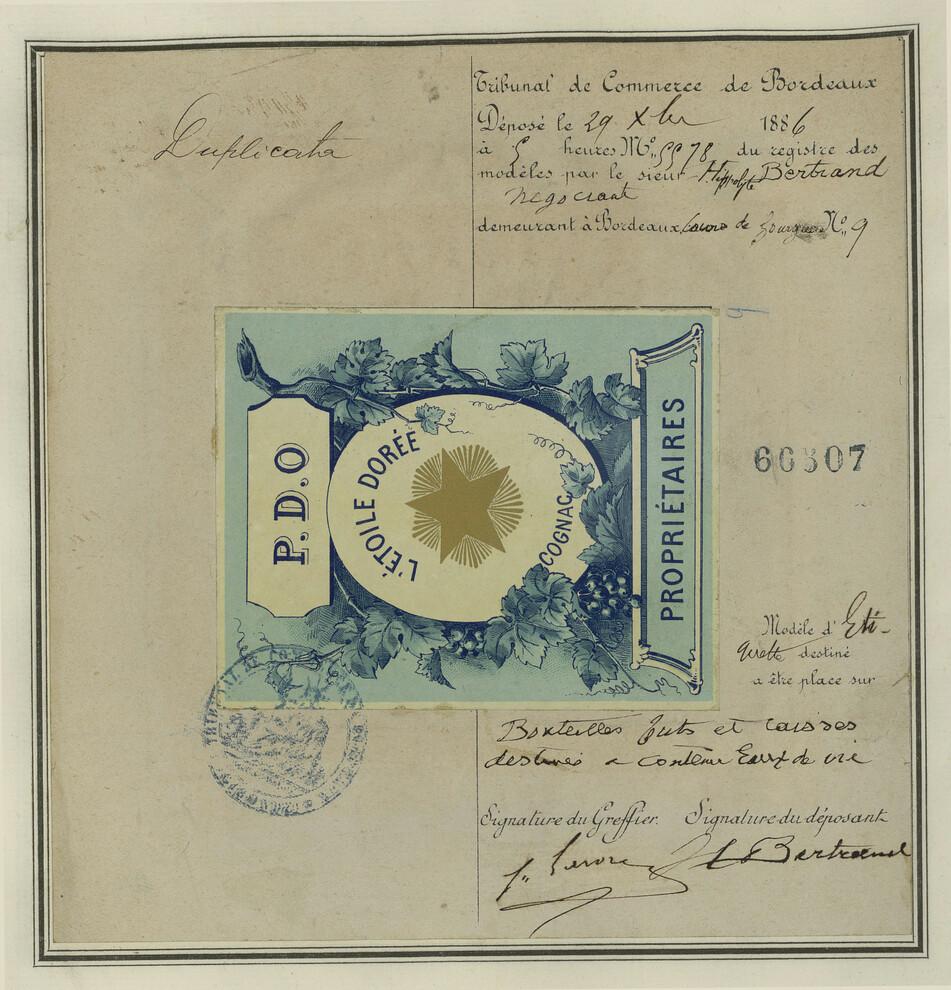 Duplicata
Tribunal de Commerce de Bordeaux
Déposé le 29 Xbre 1886
à 5 heures Nº 5578 du registre des
modèles par le sieur Hippolyte Bertrand
négociant
demeurant à Bordeaux, cours de Nº 9
P.D.O
L'ÉTOILE DORÉE
COGNAC
PROPRIÉTAIRES
66307
Modèle d'Eti-
quette destiné
a être place sur
Bouteilles futs et caisses
destinés a contenir Eaux de vie
Signature du Greffier. Signature du déposant
H Bertrand